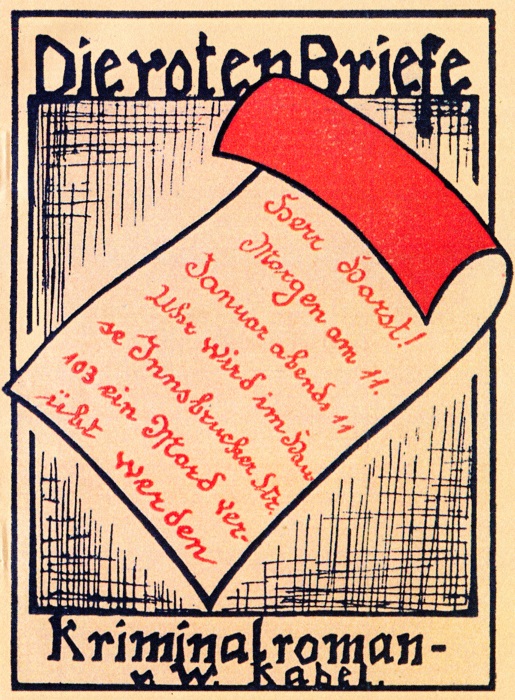 Die roten Briefe
Herr Harst!
Morgen am 11.
Januar abends 11
Uhr wird im Hau-
se Innsbrucker Str.
103 ein Mord ver-
übt werden
Kriminalroman-
v. W. Kabel.